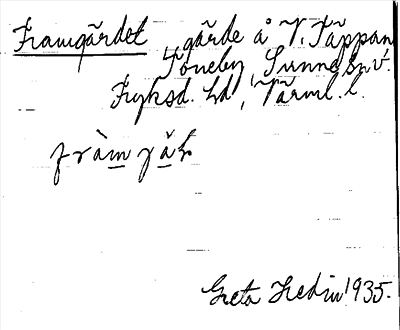 Framgärdet gärde å V. Täppan
Töneby, Sunne sn v.
Fryksd. hd, Värml. l.
fràm jäḷ
Greta Hedin 1935.